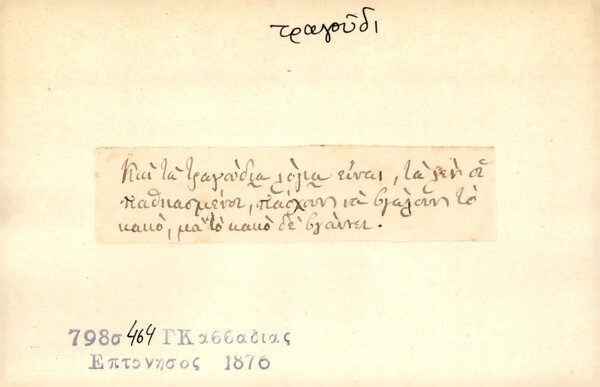 τραγοῦδι
Καὶ τὰ τραγούδια λόγια εἶναι, τὰ λὲν οἱ
παθιασμένοι, πάσχουν νὰ βγάλουν τὸ
κακὸ, μὰ τὸ κακὸ δὲ βγάννει.
798σ 464 ΓΚασσαδιας
Επτονησος 1876